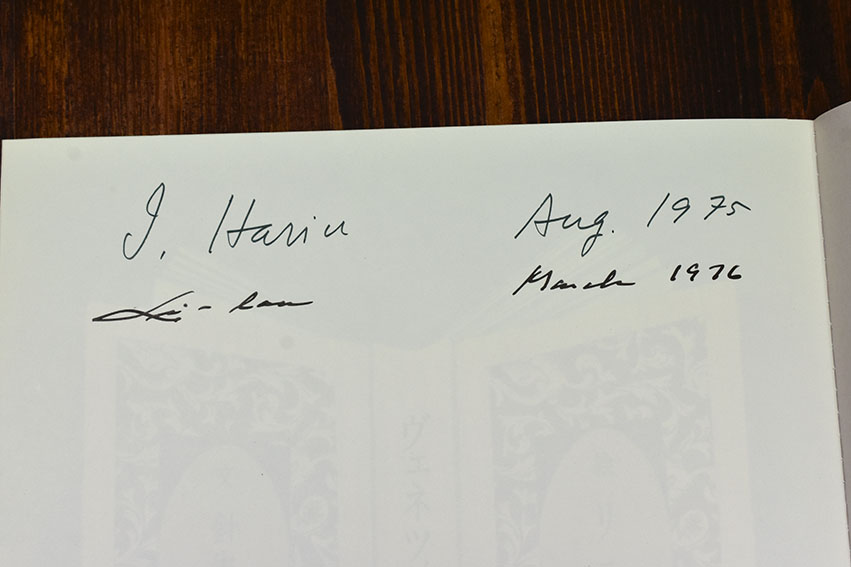 I. Hariu Aug. 1975
Li-lan March 1976
ヴェネツ